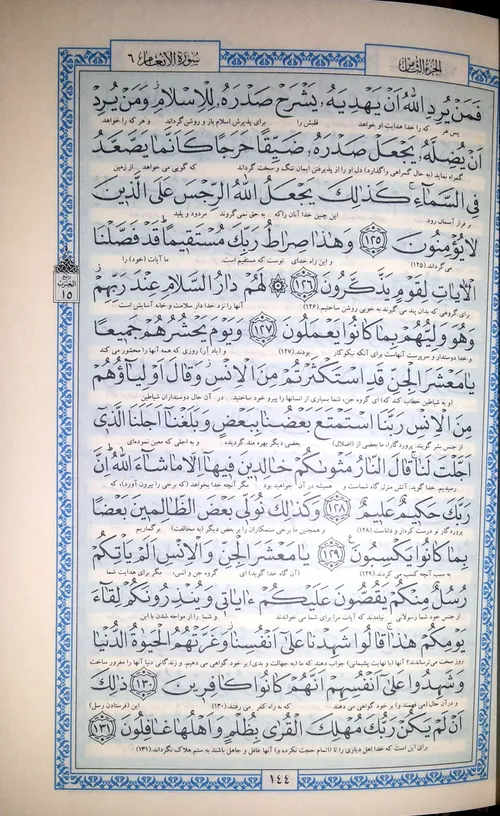 الجزء الثامن
سورة الانعام ٦
فَمَنْ يُرِدِ اللَّهُ أَنْ يَهْدِيَهُ يَشْرَحْ صَدْرَهُ لِلْإِسْلَامِ وَمَنْ يُرِدْ
پس هر که را خدا هدایت او خواهد قلبش را برای پذیرش اسلام باز و روشن گرداند و هر که را خواهد
أَنْ يُضِلَّهُ يَجْعَلْ صَدْرَهُ ضَيِّقًا حَرَجًا كَأَنَّمَا يَصَّعَّدُ
گمراه نماید (به حال گمراهی واگذارد) دل او را از پذیرفتن ایمان تنگ و سخت گرداند که گویی می‌خواهد از زمین
فِي السَّمَاءِ كَذَلِكَ يَجْعَلُ اللَّهُ الرِّجْسَ عَلَى الَّذِينَ
بر فراز آسمان رود این چنین خدا آنان را که به حق نمی‌گروند مردود و پلید
لَا يُؤْمِنُونَ ١٢٥ وَهَذَا صِرَاطُ رَبِّكَ مُسْتَقِيمًا قَدْ فَصَّلْنَا
می‌گرداند. (۱۲۵) و این راه خدای توست که مستقیم است. ما آیات (خود) را
الْآيَاتِ لِقَوْمٍ يَذَّكَّرُونَ ١٢٦ لَهُمْ دَارُ السَّلَامِ عِنْدَ رَبِّهِمْ
برای گروهی که بدان پند می‌گیرند به خوبی روشن ساختیم. (۱۲۶) آنها را نزد خدا دار سلامت و خانه آسایش است
ربع الحزب ١٥
وَهُوَ وَلِيُّهُمْ بِمَا كَانُوا يَعْمَلُونَ ١٢٧ وَيَوْمَ يَحْشُرُهُمْ جَمِيعًا
و خدا دوستدار و سرپرست آنهاست برای آنکه نیکوکار بودند. (۱۲۷) و (یاد آر) روزی که همه آنها را محشور می کند
يَا مَعْشَرَ الْجِنِّ قَدِ اسْتَكْثَرْتُمْ مِنَ الْإِنْسِ وَقَالَ أَوْلِيَاؤُهُمْ
(و به شیاطین خطاب کند که) ای گروه جن، شما بسیاری از انسانها را پیرو خود ساختید. در آن حال دوستداران شیاطین
مِنَ الْإِنْسِ رَبَّنَا اسْتَمْتَعَ بَعْضُنَا بِبَعْضٍ وَبَلَغْنَا أَجَلَنَا الَّذِي
از جنس بشر گویند: پروردگارا، ما بعضی از (اضلال) بعضی دیگر بهره مند گردیده و به اجلی که معین نموده‌ای
أَجَّلْتَ لَنَا قَالَ النَّارُ مَثْوَاكُمْ خَالِدِينَ فِيهَا إِلَّا مَا شَاءَ اللَّهُ إِنَّ
رسیدیم. خدا گوید: آتش منزل گاه شماست و همیشه در آن خواهید بود مگر آنچه خدا بخواهد (که برخی را بیرون آورد)، که
رَبَّكَ حَكِيمٌ عَلِيمٌ ١٢٨ وَكَذَلِكَ نُوَلِّي بَعْضَ الظَّالِمِينَ بَعْضًا
پروردگار تو درست کردار و داناست. (۱۲۸) و همچنین ما برخی ستمکاران را بر بعض دیگر (به مخالفت) برگماریم
بِمَا كَانُوا يَكْسِبُونَ ١٢٩ يَا مَعْشَرَ الْجِنِّ وَالْإِنْسِ أَلَمْ يَأْتِكُمْ
به سبب آنچه کسب می کردند. (۱۲۹) (آن گاه خدا گوید:) ای گروه جن و انس، مگر برای هدایت شما
رُسُلٌ مِنْكُمْ يَقُصُّونَ عَلَيْكُمْ آيَاتِي وَيُنْذِرُونَكُمْ لِقَاءَ
از جنس خود شما رسولانی نیامدند که آیات مرا برای شما می خواندند و شما را از مواجهه شدن با این
يَوْمِكُمْ هَذَا قَالُوا شَهِدْنَا عَلَى أَنْفُسِنَا وَغَرَّتْهُمُ الْحَيَاةُ الدُّنْيَا
روز سخت می‌ترساندند؟ آنها (با نهایت پشیمانی) جواب دهند که ما (به جهالت و بدی) بر خود گواهی می دهیم. و زندگانی دنیا آنها را مغرور ساخت
وَشَهِدُوا عَلَى أَنْفُسِهِمْ أَنَّهُمْ كَانُوا كَافِرِينَ ١٣٠ ذَلِكَ
و در آن حال (می فهمند و) بر خود گواهی می دهند که به راه کفر می رفتند. (۱۳۰) این (فرستادن رسل)
أَنْ لَمْ يَكُنْ رَبُّكَ مُهْلِكَ الْقُرَى بِظُلْمٍ وَأَهْلُهَا غَافِلُونَ ١٣١
برای این است که خدا اهل دیاری را تا (اتمام حجت نکرده و) آنها غافل و جاهل باشند به ستم هلاک نگرداند. (۱۳۱)
١٤٤